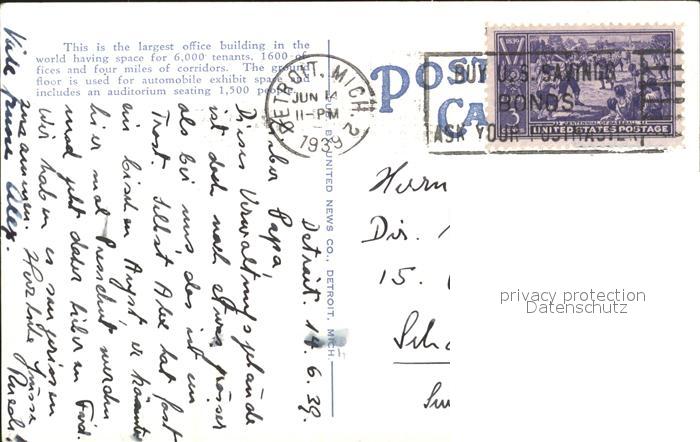 This is the largest office building in the
world having space for 6,000 tenants. 1600 of
fices and four miles of corridors. The ground
floor is used for automobile exhibit space and
includes an auditorium seating 1,500 people.
DETROIT, MICH. 2
JUN 14
11-PM
1939
BUY U.S. SAVINGS
BONDS
ASK YOUR POSTMASTER
1839
3
CENTENNIAL OF BASEBALL
UNITED STATES POSTAGE
POST
CA
PUB. BY UNITED NEWS CO., DETROIT, MICH.
Detroit. 14.6.39.
Lieber Papa,
Dieses Verwaltungsgebäude
ist doch noch etwas grösser
als bei uns das ist ein
Trost. Selbst Alex hat fast
ein bischen Angst er könnte
hier mal
und geht daher lieber zu Ford.
Wir haben es
zusammen. Herzliche Grüsse
Viele
Alex.
Herrn
Dir.
15.
Sch
privacy protection
Datenschutz